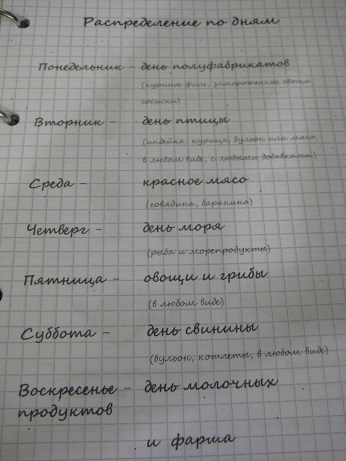 Распределение по дням
Понедельник – день полуфабрикатов
(куриное филе, замороженные овощи,
сосиски)
Вторник – день птицы
(индейка, курица, бульон или мясо,
в любом виде, с любыми добавками)
Среда – красное мясо
(говядина, баранина)
Четверг – день моря
(рыба и морепродукты)
Пятница – овощи и грибы
(в любом виде)
Суббота – день свинины
(бульон, котлеты, в любом виде)
Воскресенье – день молочных
продуктов
и фарша